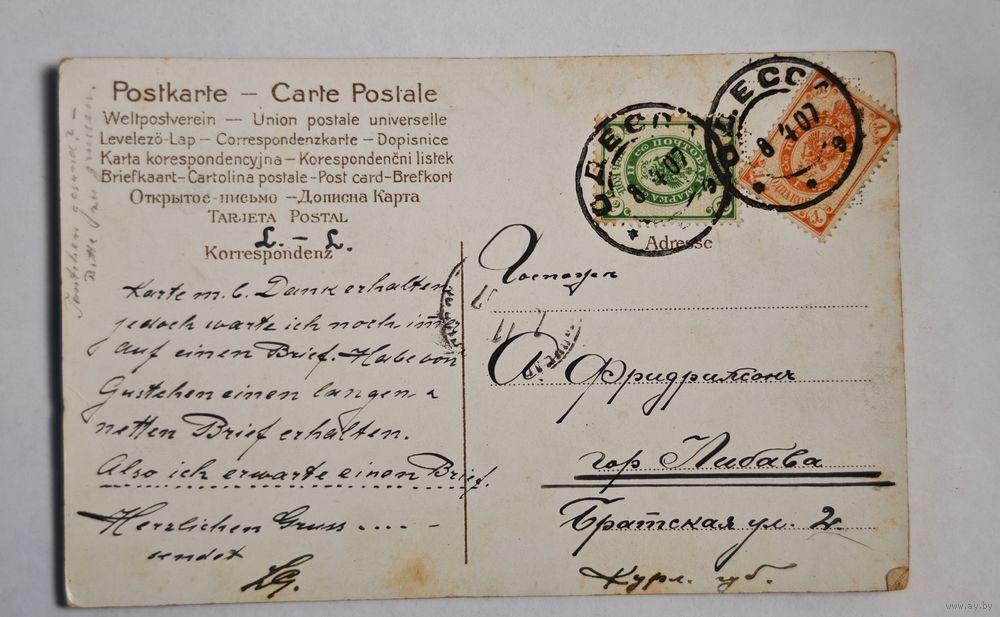 Postkarte — Carte Postale
Weltpostverein — Union postale universelle
Levelező-Lap — Correspondenzkarte — Dopisnice
Karta korespondencyjna — Korespondenční listek
Briefkaart — Cartolina postale — Post card — Brefkort
Открытое письмо — Дописна Карта
Tarjeta Postal
L. — L.
Korrespondenz
Adresse
Karte m. b. Dank erhalten,
jedoch warte ich noch immer
auf einen Brief. Habe von
Gustchen einen langen
netten Brief erhalten.
Also ich erwarte einen Brief.
Herzlichen Gruss ....
sendet
Bitte zu grüssen.
ОДЕССА
8 4 07
ОДЕССА
8 4 07
9
Госпожа
О. Фридрихсонъ
гор Либава
Братская ул. 2.
Курл. губ.
www.ay.by